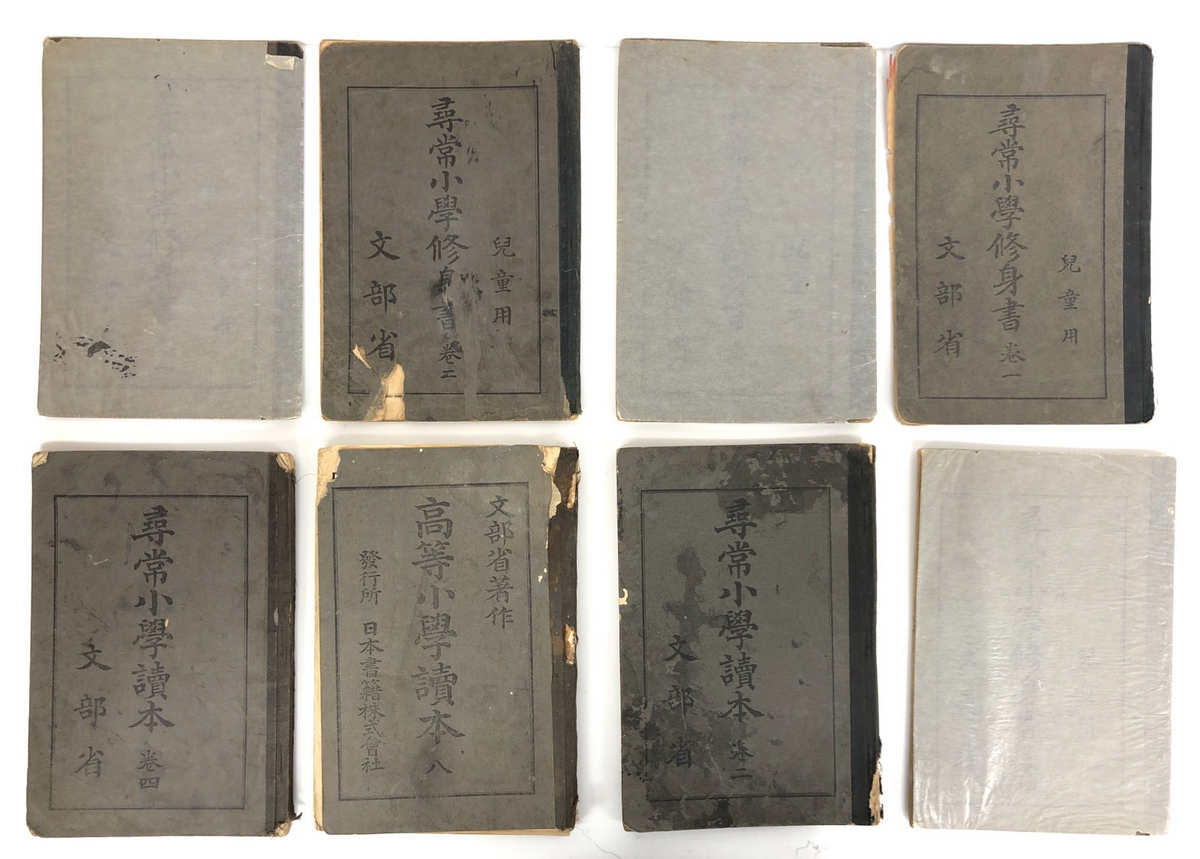 兒童用
尋常小學修身書 卷二
文部省
兒童用
尋常小學修身書 卷一
文部省
尋常小學讀本 卷四
文部省
文部省著作
高等小學讀本 八
發行所 日本書籍株式會社
尋常小學讀本 卷二
文部省